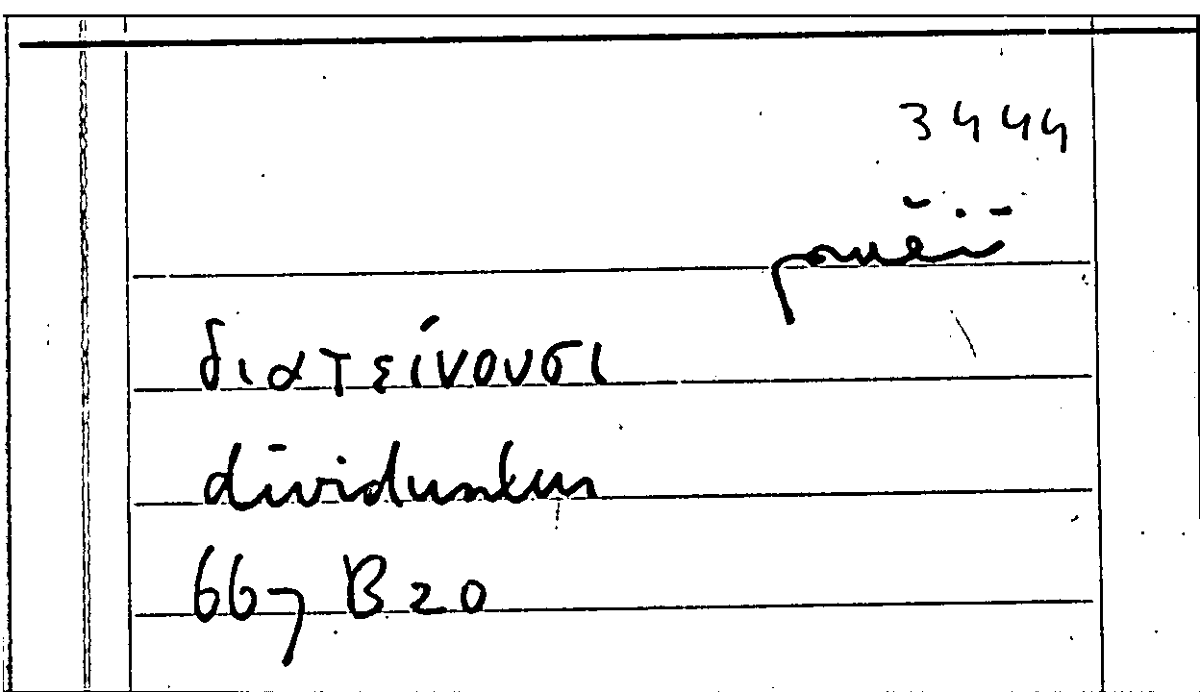 3444
διατείνουσι
dividuntur
667 B 20